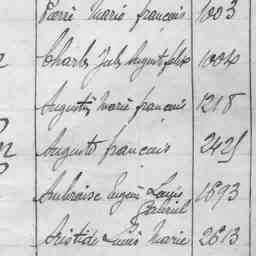 Pierre Marie françois 1003
Charles July August felix 1004
Augustin Marie francois 1218
Auguste francois 2425
Ambroise Eugène Louis 1693
Gabriel
Aristide Louis Marie 2613